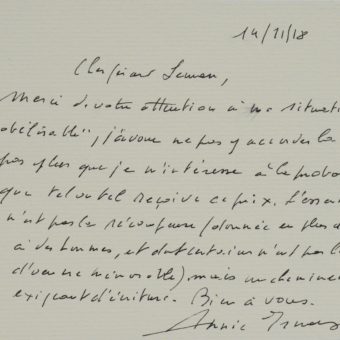 14/11/18
Cher Gérard
Merci de votre attention à ma situati
", j'avoue ne pas y accorder la
pas plus que je m'intéresse à la proba
que tel ou tel reçoive ce prix. L'essen
n'est pas la récompense (donnée en plus d
à des hommes, et dont certains n'ont pas l
d'œuvre mémorable), mais un chemine
exigeant d'écriture. Bien à vous.
Annie Ernaux